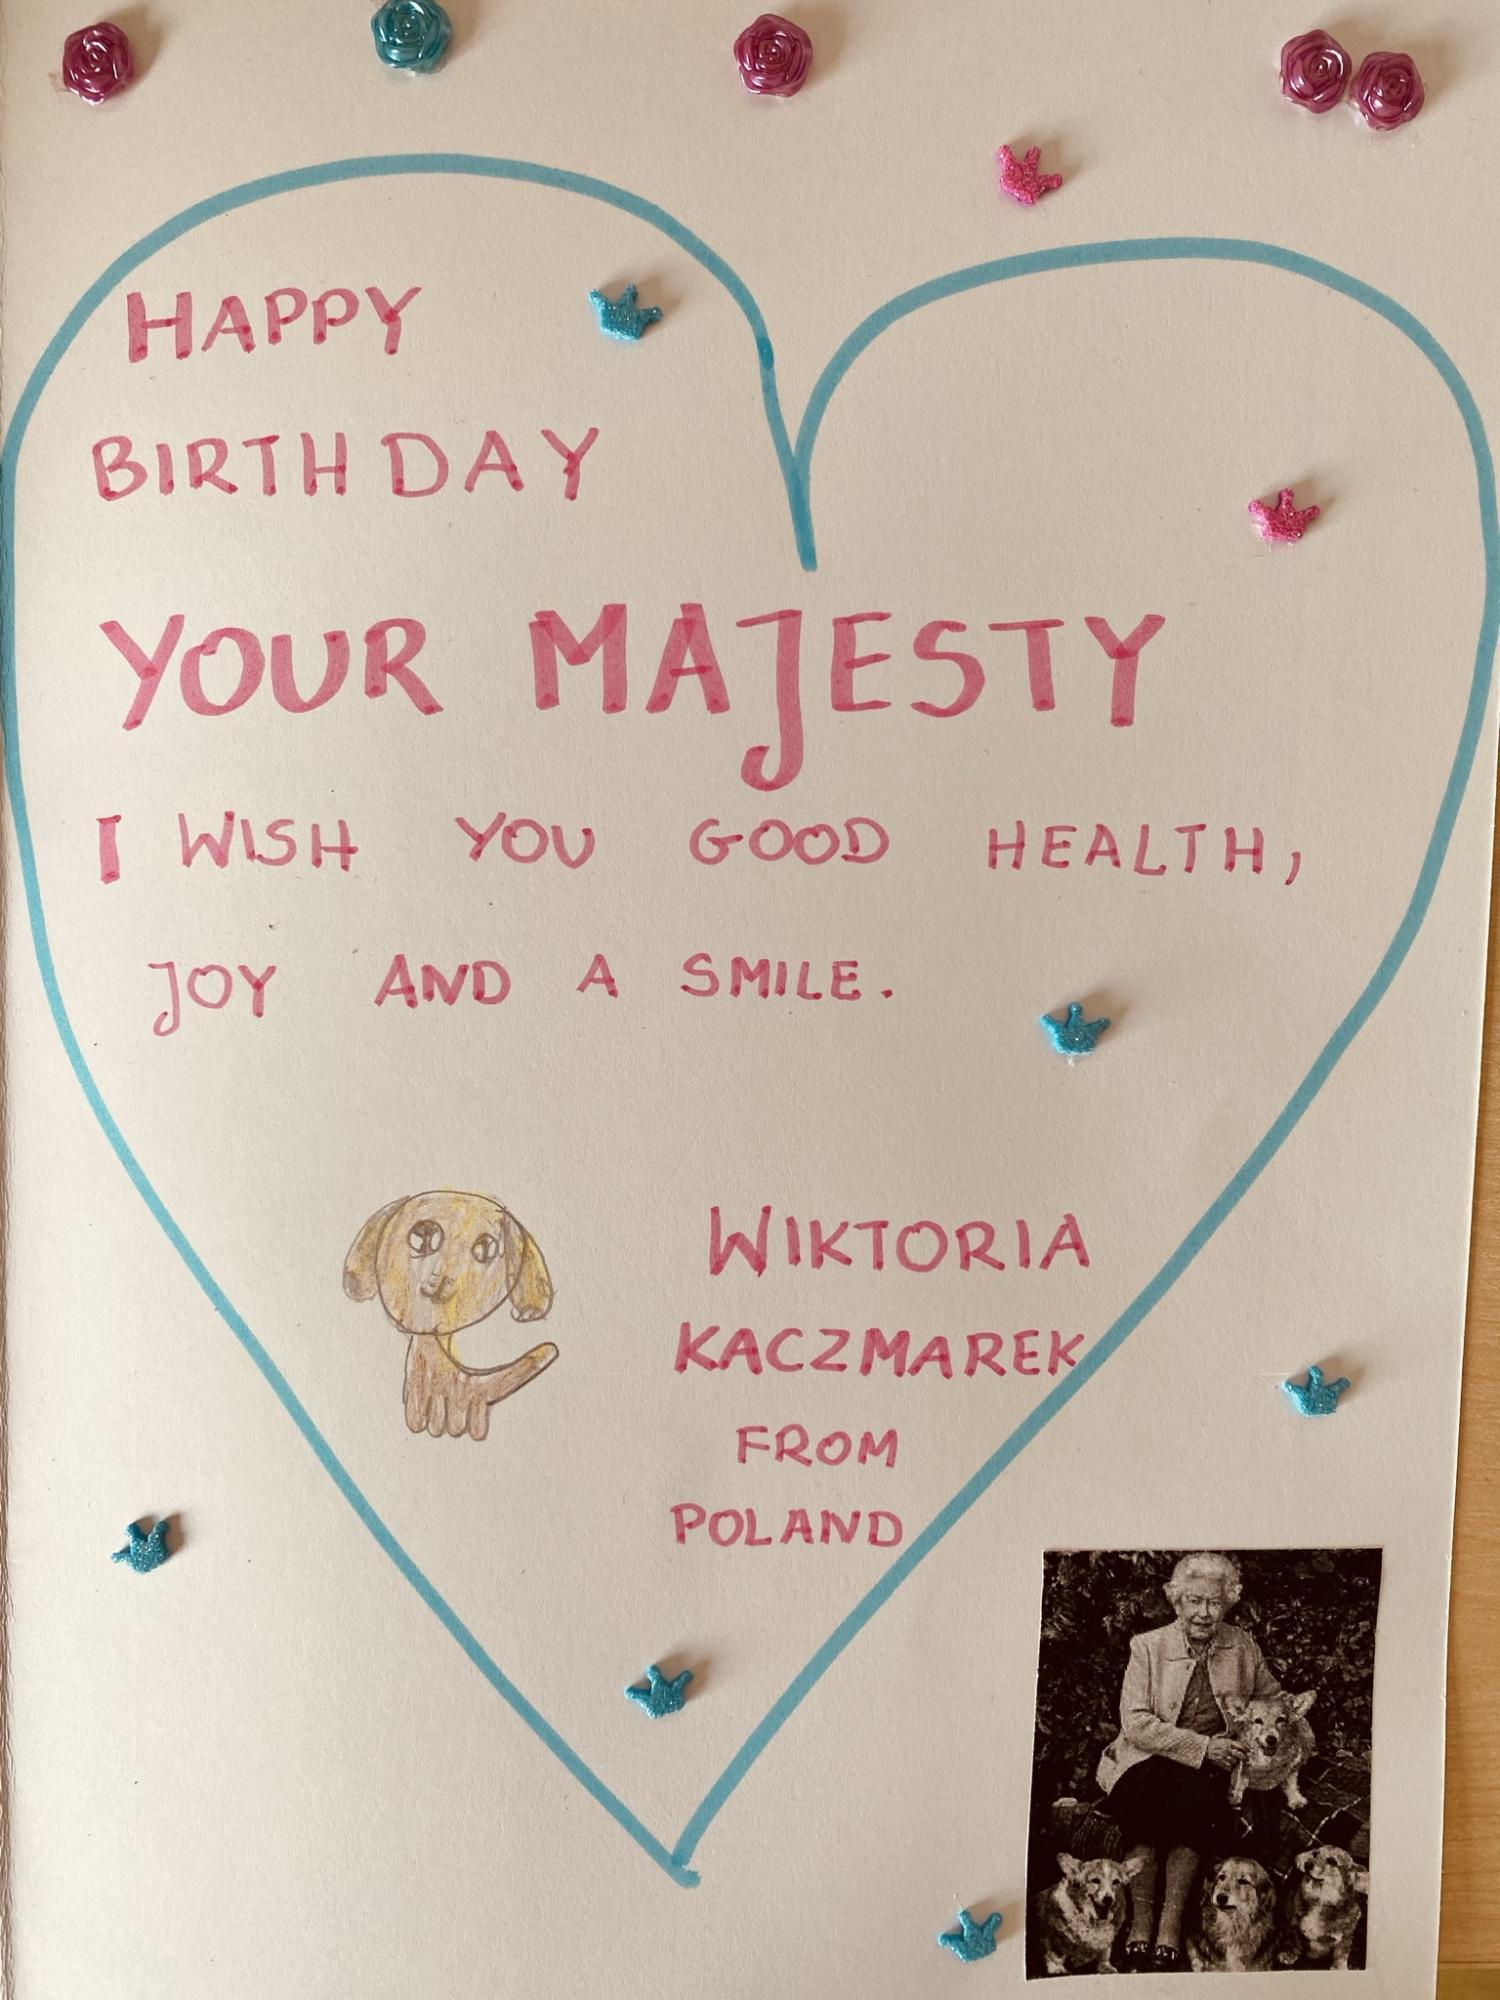 HAPPY
BIRTHDAY
YOUR MAJESTY
I WISH YOU GOOD HEALTH,
JOY AND A SMILE.
WIKTORIA
KACZMAREK
FROM
POLAND